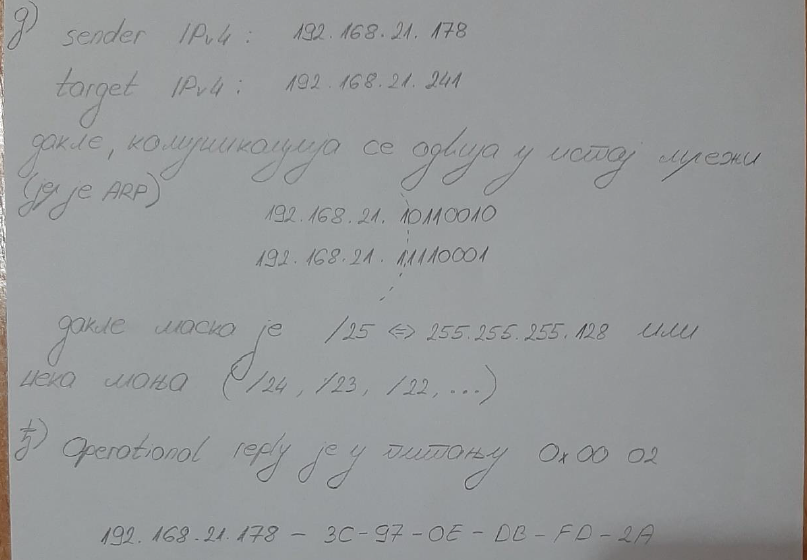 д) sender IPv4: 192.168.21.178
target IPv4: 192.168.21.241
дакле, комуникација се одвија у истој мрежи
(јер је ARP)
192.168.21.10110010
192.168.21.11110001
дакле маска је /25 <=> 255.255.255.128 или
нека мања (/24, /23, /22, ...)
ђ) Operational reply је у питању 0x00 02
192.168.21.178 - 3C-97-0E-DB-FD-2A